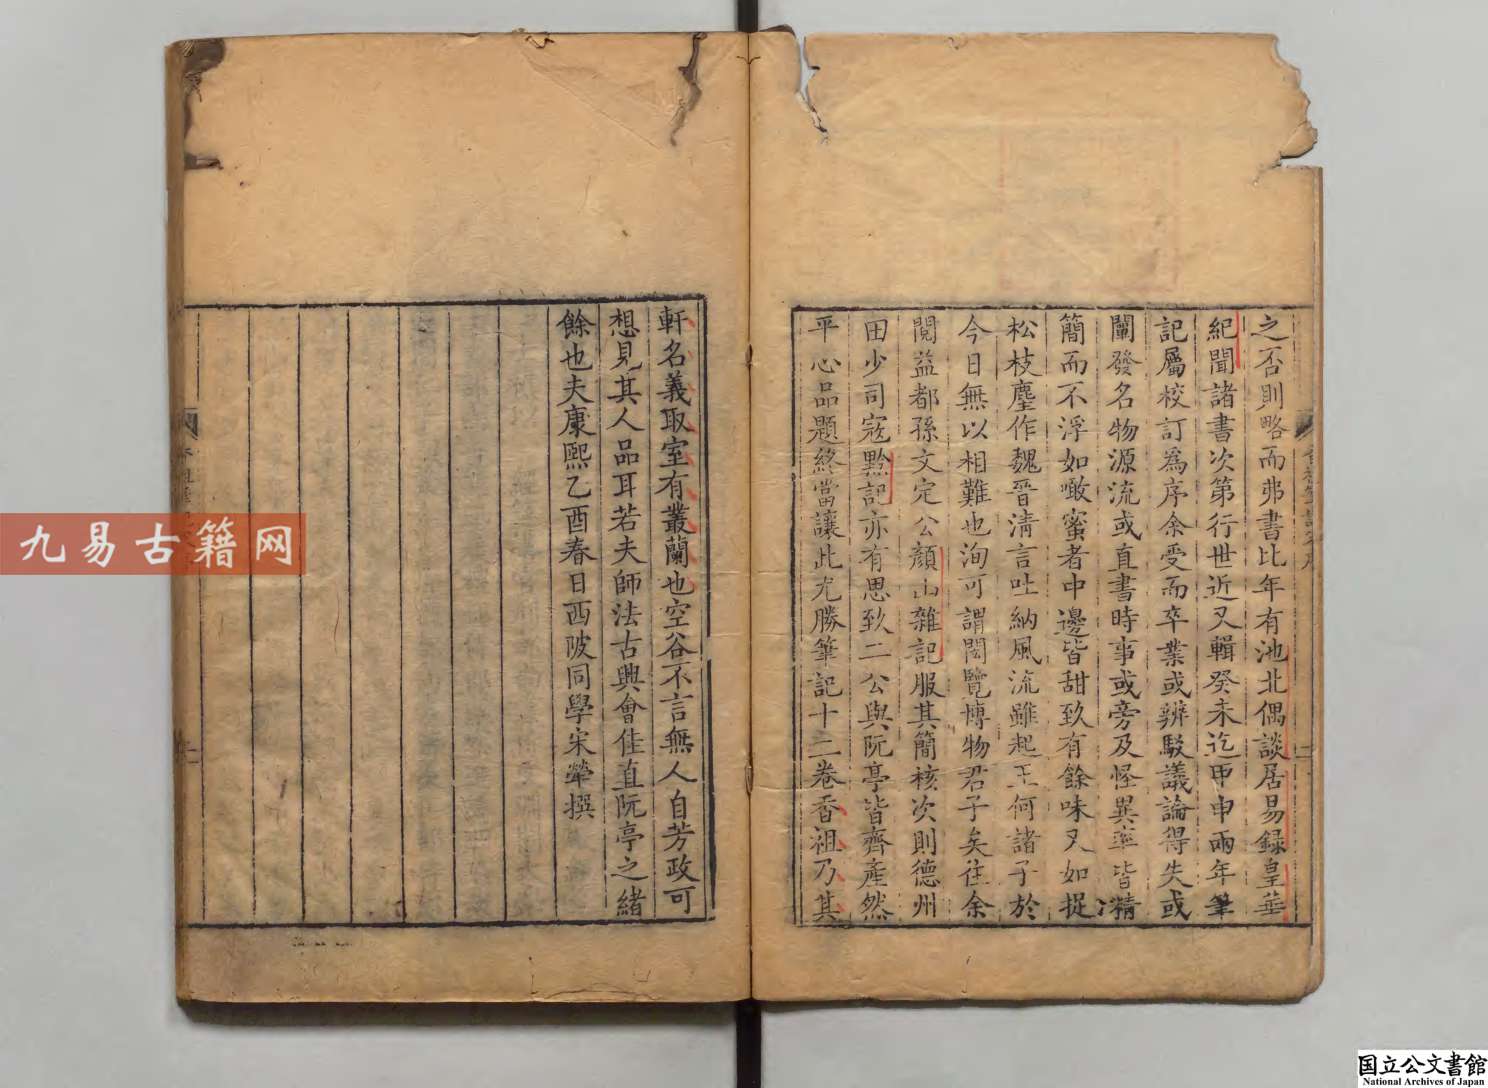 之否則略而弗書比年有池北偶談居易録皇華
紀聞諸書次第行世近又輯癸未迄甲申兩年筆
記屬校訂爲序余受而卒業或辨駁議論得失或
闡發名物源流或直書時事或旁及怪異率皆精
簡而不浮如噉蜜者中邊皆甜致有餘味又如捉
松枝麈作魏晉淸言吐納風流雖起王何諸子於
今日無以相難也洵可謂閎覽博物君子矣往余
閱益都孫文定公顏山雜記服其簡核次則德州
田少司寇黔記亦有思致二公與阮亭皆齊產然
平心品題終當讓此尤勝筆記十二卷香祖乃其
軒名義取室有叢蘭也空谷不言無人自芳政可
想見其人品耳若夫師法古興會佳直阮亭之緒
餘也夫康熙乙酉春日西陂同學宋犖撰
九易古籍网
国立公文書館
National Archives of Japan